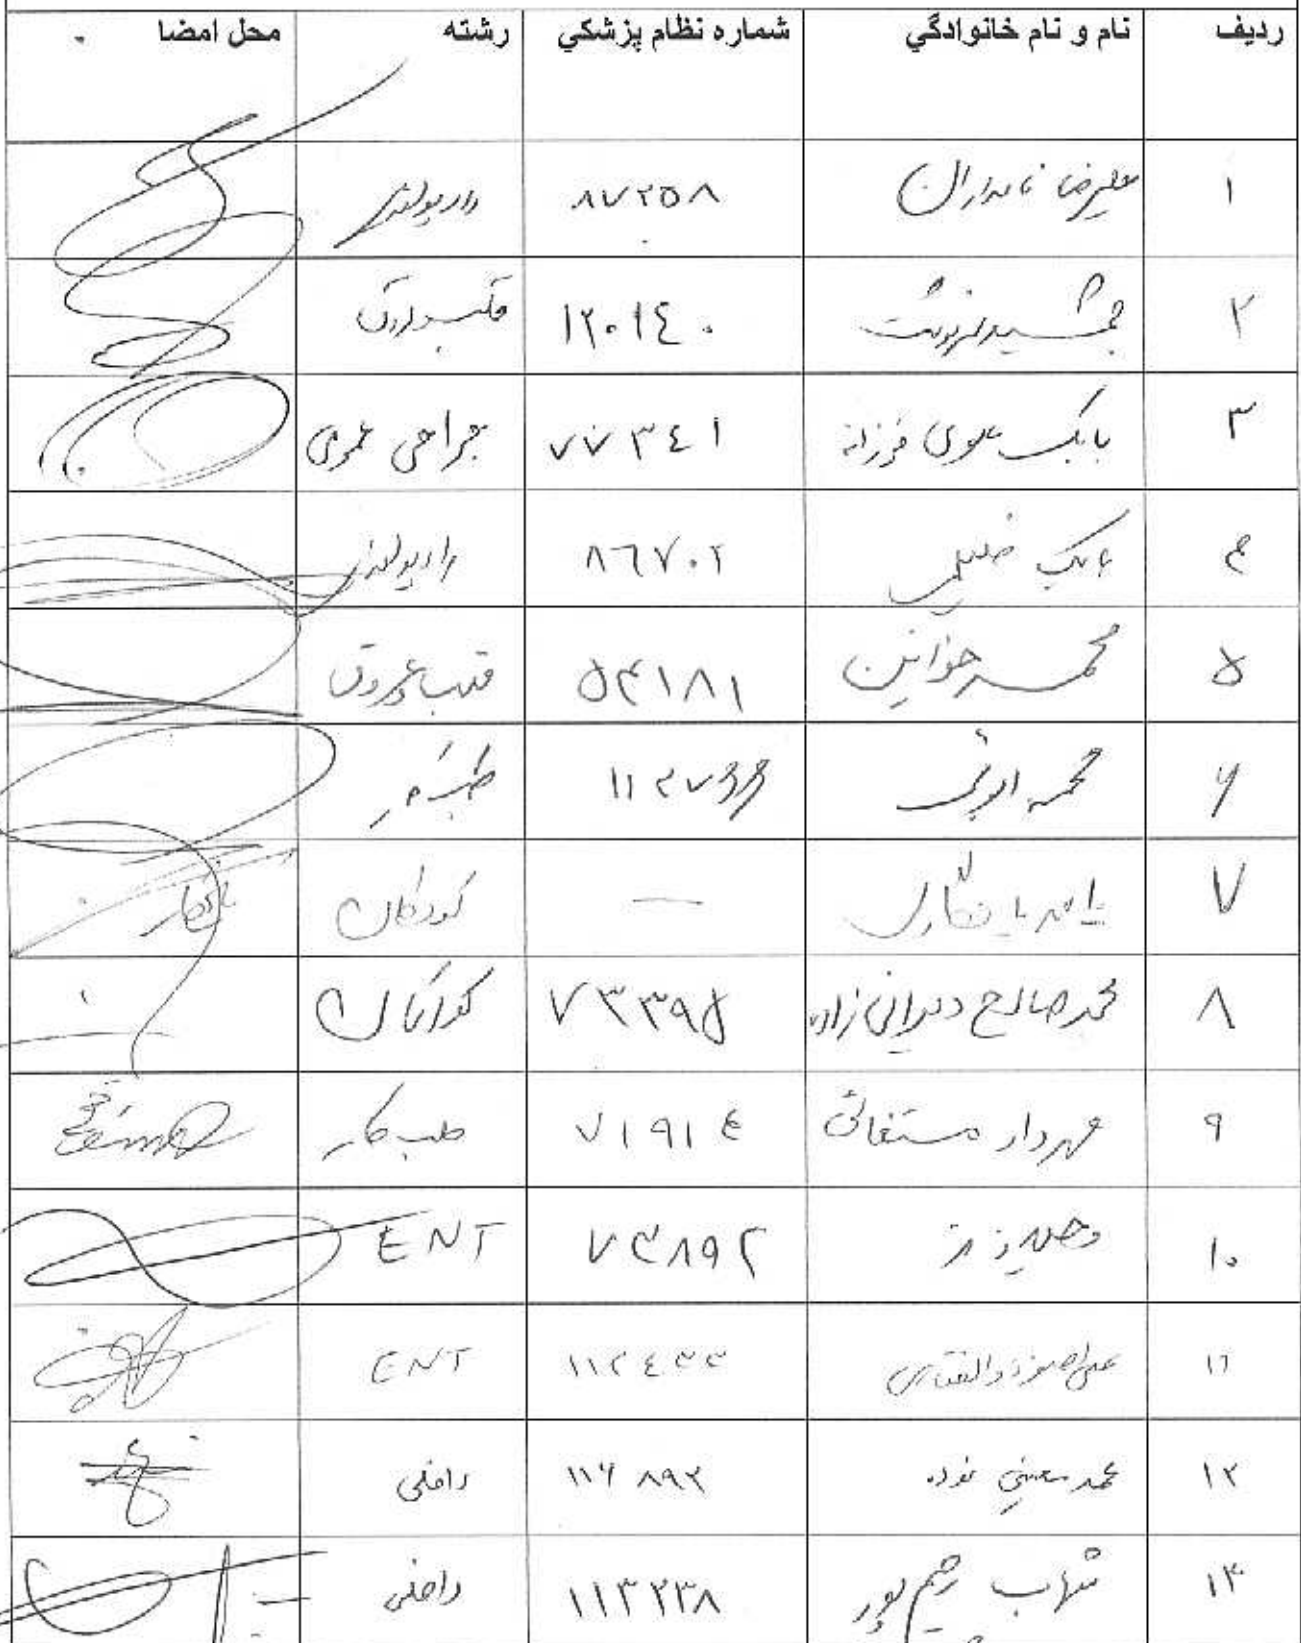 ردیف نام و نام خانوادگي شماره نظام پزشکي رشته محل امضا
۱ علیرضا نامداران ۸۷۲۵۸ رادیولوژی
۲ جمشید ۱۲۰۱٤۰ قلب و عروق
۳ بابک علوی فرزانه ۷۷۳٤۱ جراحی عمومی
۴ بابک خلیلی ۸٦۷۰۲ رادیولوژی
۵ محمد خوانین ۵۴۱۸۱ قلب و عروق
۶ محمد طب کار
۷ — کودکان
۸ محمد صالح دیرانی زاده ۷۳۳۹۵ کودکان
۹ مهرداد مستغاثی ۷۱۹۱٤ طب کار
۱۰ ۷۳۸۹۲ ENT
۱۱ علی اصغر ذوالفقاری ۱۱۲٤۳۳ ENT
۱۲ محمد معینی نوده ۱۱۶۸۹۲ داخلی
۱۳ شهاب رحیم پور ۱۱۳۲۳۸ داخلی